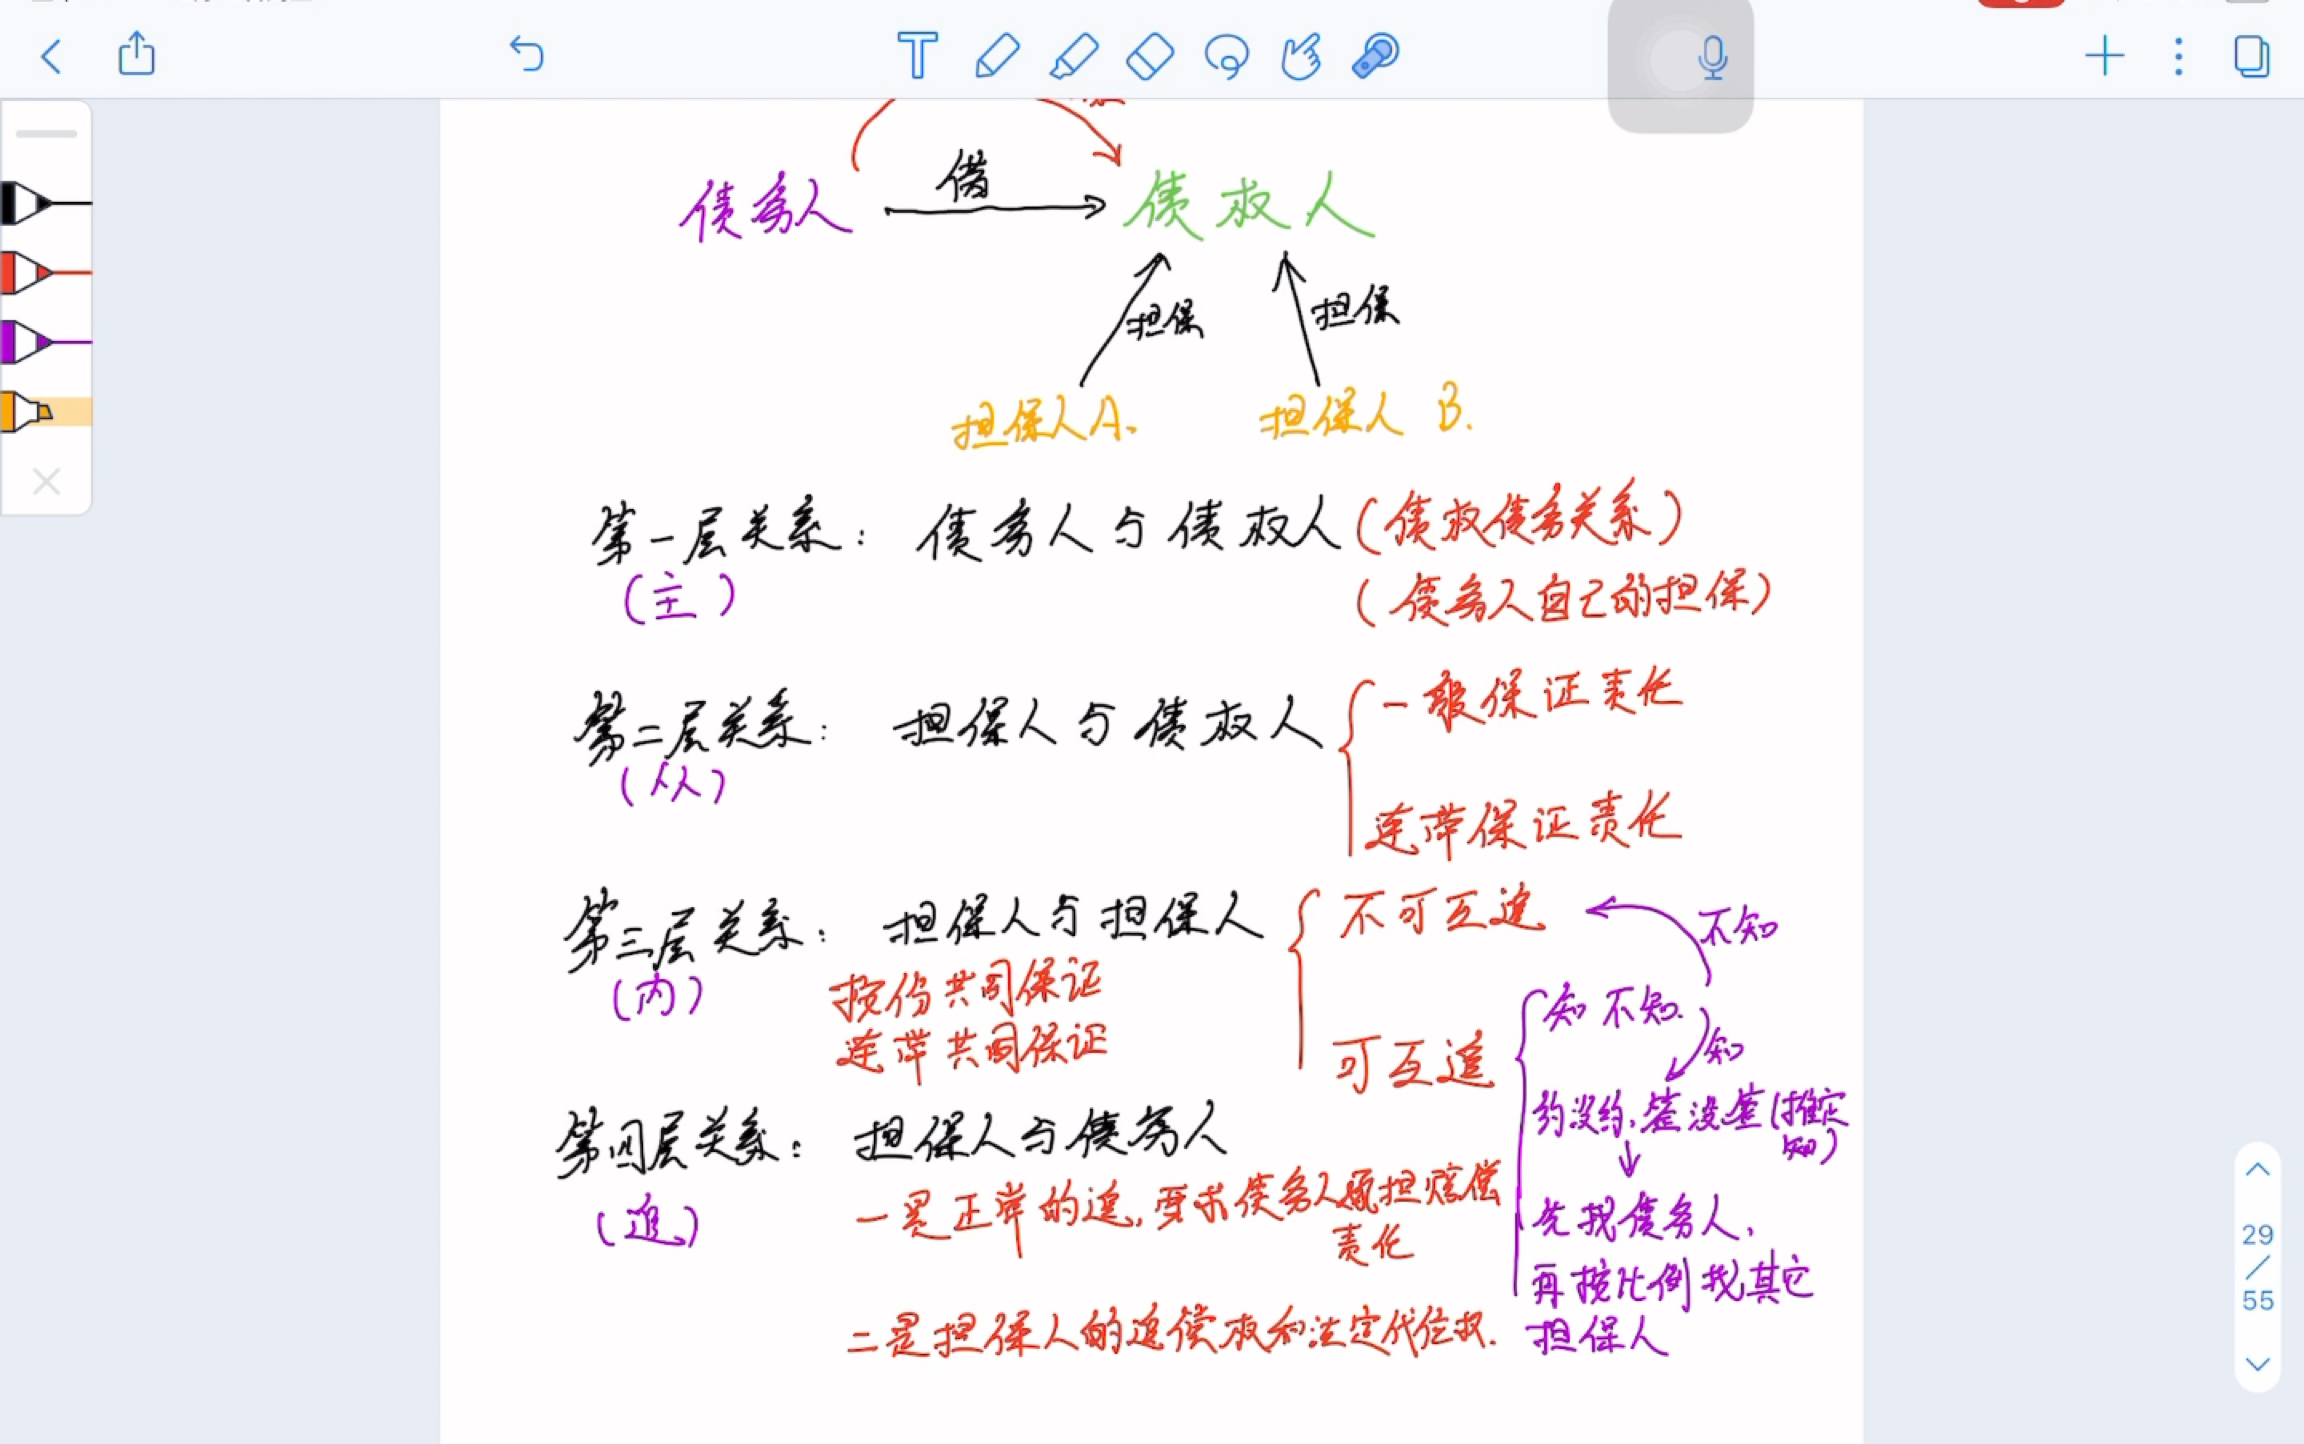 借
债务人
债权人
担保
担保
担保人A.
担保人 B.
第一层关系： 债务人与债权人（债权债务关系）
（主）
（债务人自己的担保）
第二层关系： 担保人与债权人
（从）
一般保证责任
连带保证责任
第三层关系： 担保人与担保人
（内）
按份共同保证
连带共同保证
不可互追
不知
知 不知.
知
可互追
约没约，签没签（推定知）
先找债务人，
再按比例找其它
担保人
第四层关系： 担保人与债务人
（追）
一是正常的追，要求债务人承担赔偿
责任
二是担保人的追偿权和法定代位权.
29
/
55